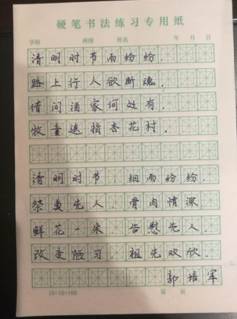 硬笔书法练习专用纸
年 月 日
清明时节雨纷纷,
路上行人欲断魂,
借问酒家何处有,
牧童遥指杏花村.
清明时节细雨纷纷,
祭奠先人,骨肉情深
鲜花一束 告慰先人.
改变陋习 祖先欢欣.
郭培军